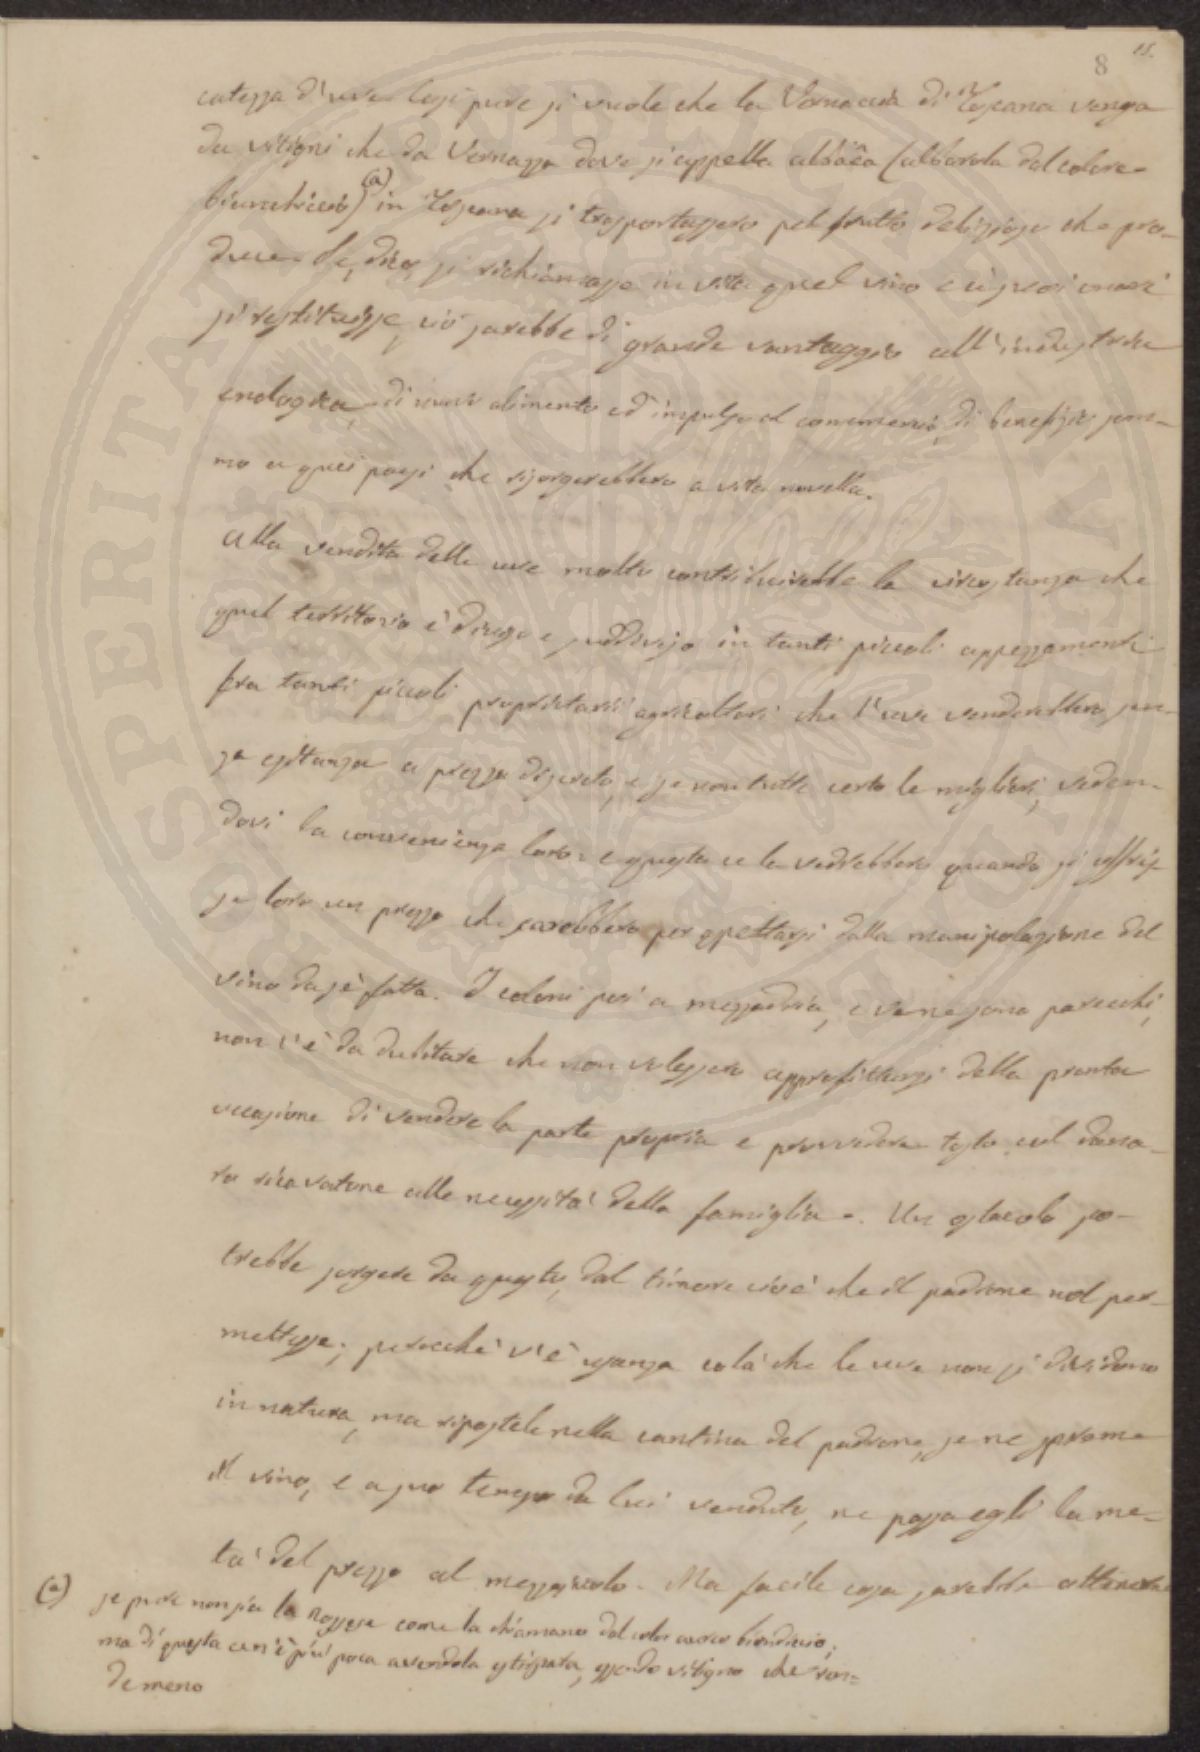 8 15.
catezza d'uve. Così pure si vuole che la Vernaccia di Toscana venga
da vitigni che da Vernazza dove si appella albàëa (albarola dal colore
bianchiccio) (a) in Toscana si trasportassero pel frutto delizioso che pro-
duce. Se, dico, si richiamasse in vita quel vino e ai primi onori
si restituisse, ciò sarebbe di grande vantaggio all'industria
enologica, di nuovo alimento ed impulso al commercio, di benefizio som-
mo a quei paesi che risorgerebbero a vita novella.
Alla vendita delle uve molto contribuirebbe la circostanza che
quel territorio è diviso e suddiviso in tanti piccoli appezzamenti
fra tanti piccoli proprietarii agricoltori che l'uve venderebbero sen-
za esitanza a prezzo discreto, e se non tutte certo le migliori, veden-
dovi la convenienza loro: e questa ce la vedrebbero quando si offris-
se loro un prezzo che sarebbero per aspettarsi dalla manipolazione del
vino da sè fatta. I coloni poi a mezzadria, e ve ne sono parecchi,
non v'è da dubitare che non volessero approfittarsi della pronta
occasione di vendere la parte propria e provvedere tosto col dana-
ro ricavatone alle necessità della famiglia. Un ostacolo po-
trebbe sorgere da questo, dal timore cioè che il padrone nol per-
mettesse; perocchè v'è usanza colà che le uve non si dividono
in natura, ma ripostele nella cantina del padrone, se ne sprome
il vino, e a suo tempo da lui venduto, ne passa egli la me-
tà del prezzo al mezzajuolo. Ma facile cosa sarebbe ottenere
(a) se pure non sia la Rossese come la chiamano dal color aureo biondiccio;
ma di questa ce n'è più poca avendola estirpata, essendo vitigno che ren-
de meno
PROSPERITATI PUBLICAE AUGENDAE